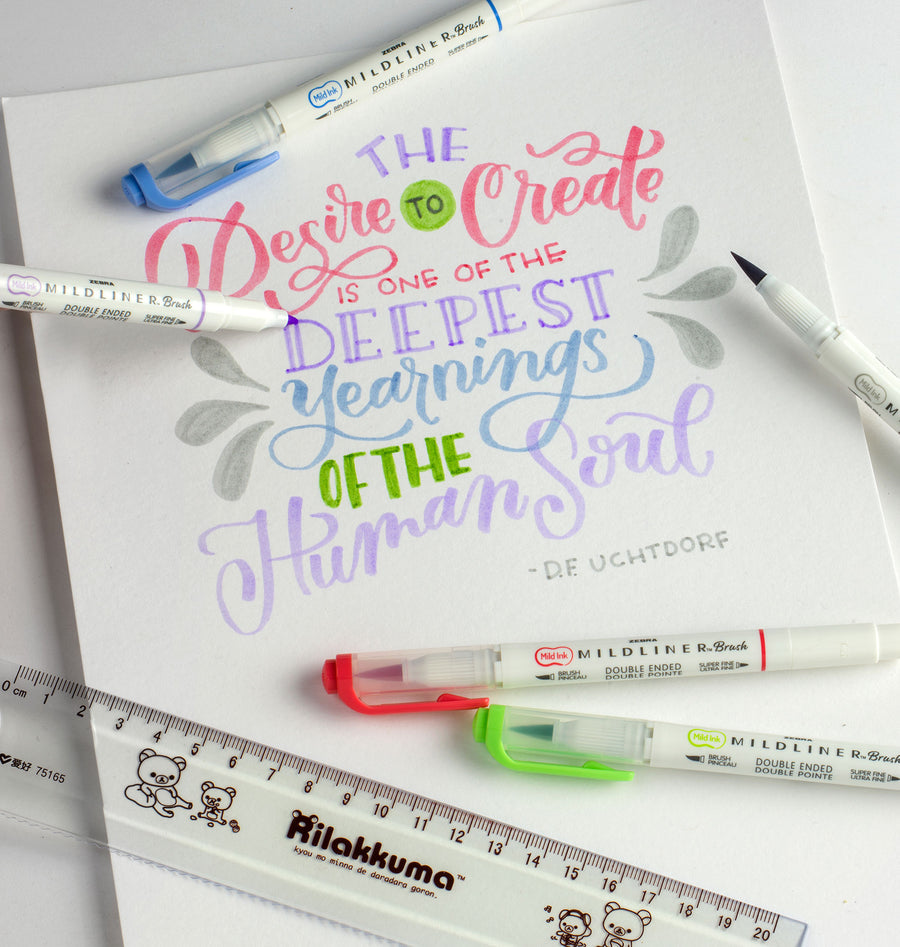 ZEBRA
Mild Ink MILDLINER™ Brush
BRUSH DOUBLE ENDED SUPER FINE
THE
Desire TO Create
IS ONE OF THE
DEEPEST
Yearnings
OF THE
Human Soul
-D.F UCHTDORF
ZEBRA
Mild Ink MILDLINER™ Brush
BRUSH PINCEAU DOUBLE ENDED DOUBLE POINTE SUPER FINE ULTRA FINE
Mild Ink
ZEBRA
Mild Ink MILDLINER™ Brush
BRUSH PINCEAU DOUBLE ENDED DOUBLE POINTE SUPER FINE ULTRA FINE
Mild Ink MILDLINER™ Brush
BRUSH PINCEAU DOUBLE ENDED DOUBLE POINTE SUPER FINE ULTRA FINE
0 cm 1 2 3 4 5 6 7 8 9 10 11 12 13 14 15 16 17 18 19 20
爱好 75165
Rilakkuma™
kyou mo minna de daradara goron.